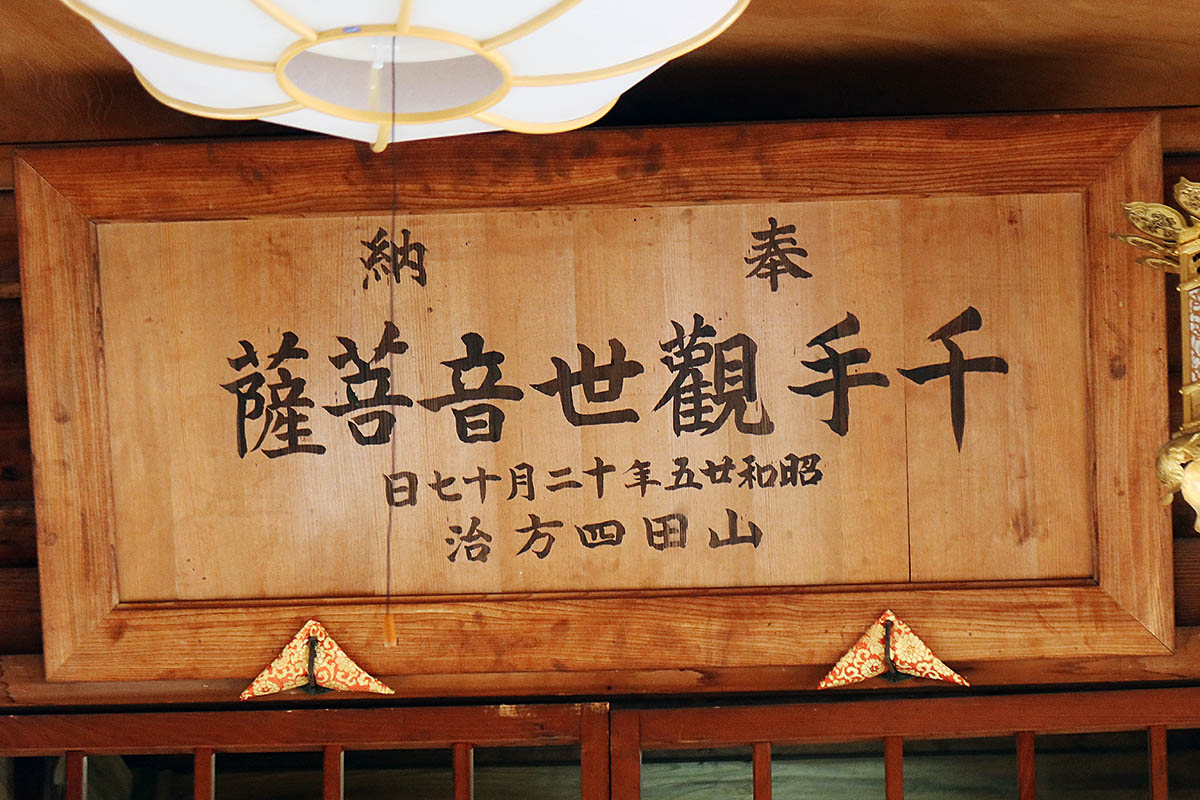 奉納
千手觀世音菩薩
昭和廿五年十二月十七日
山田四方治